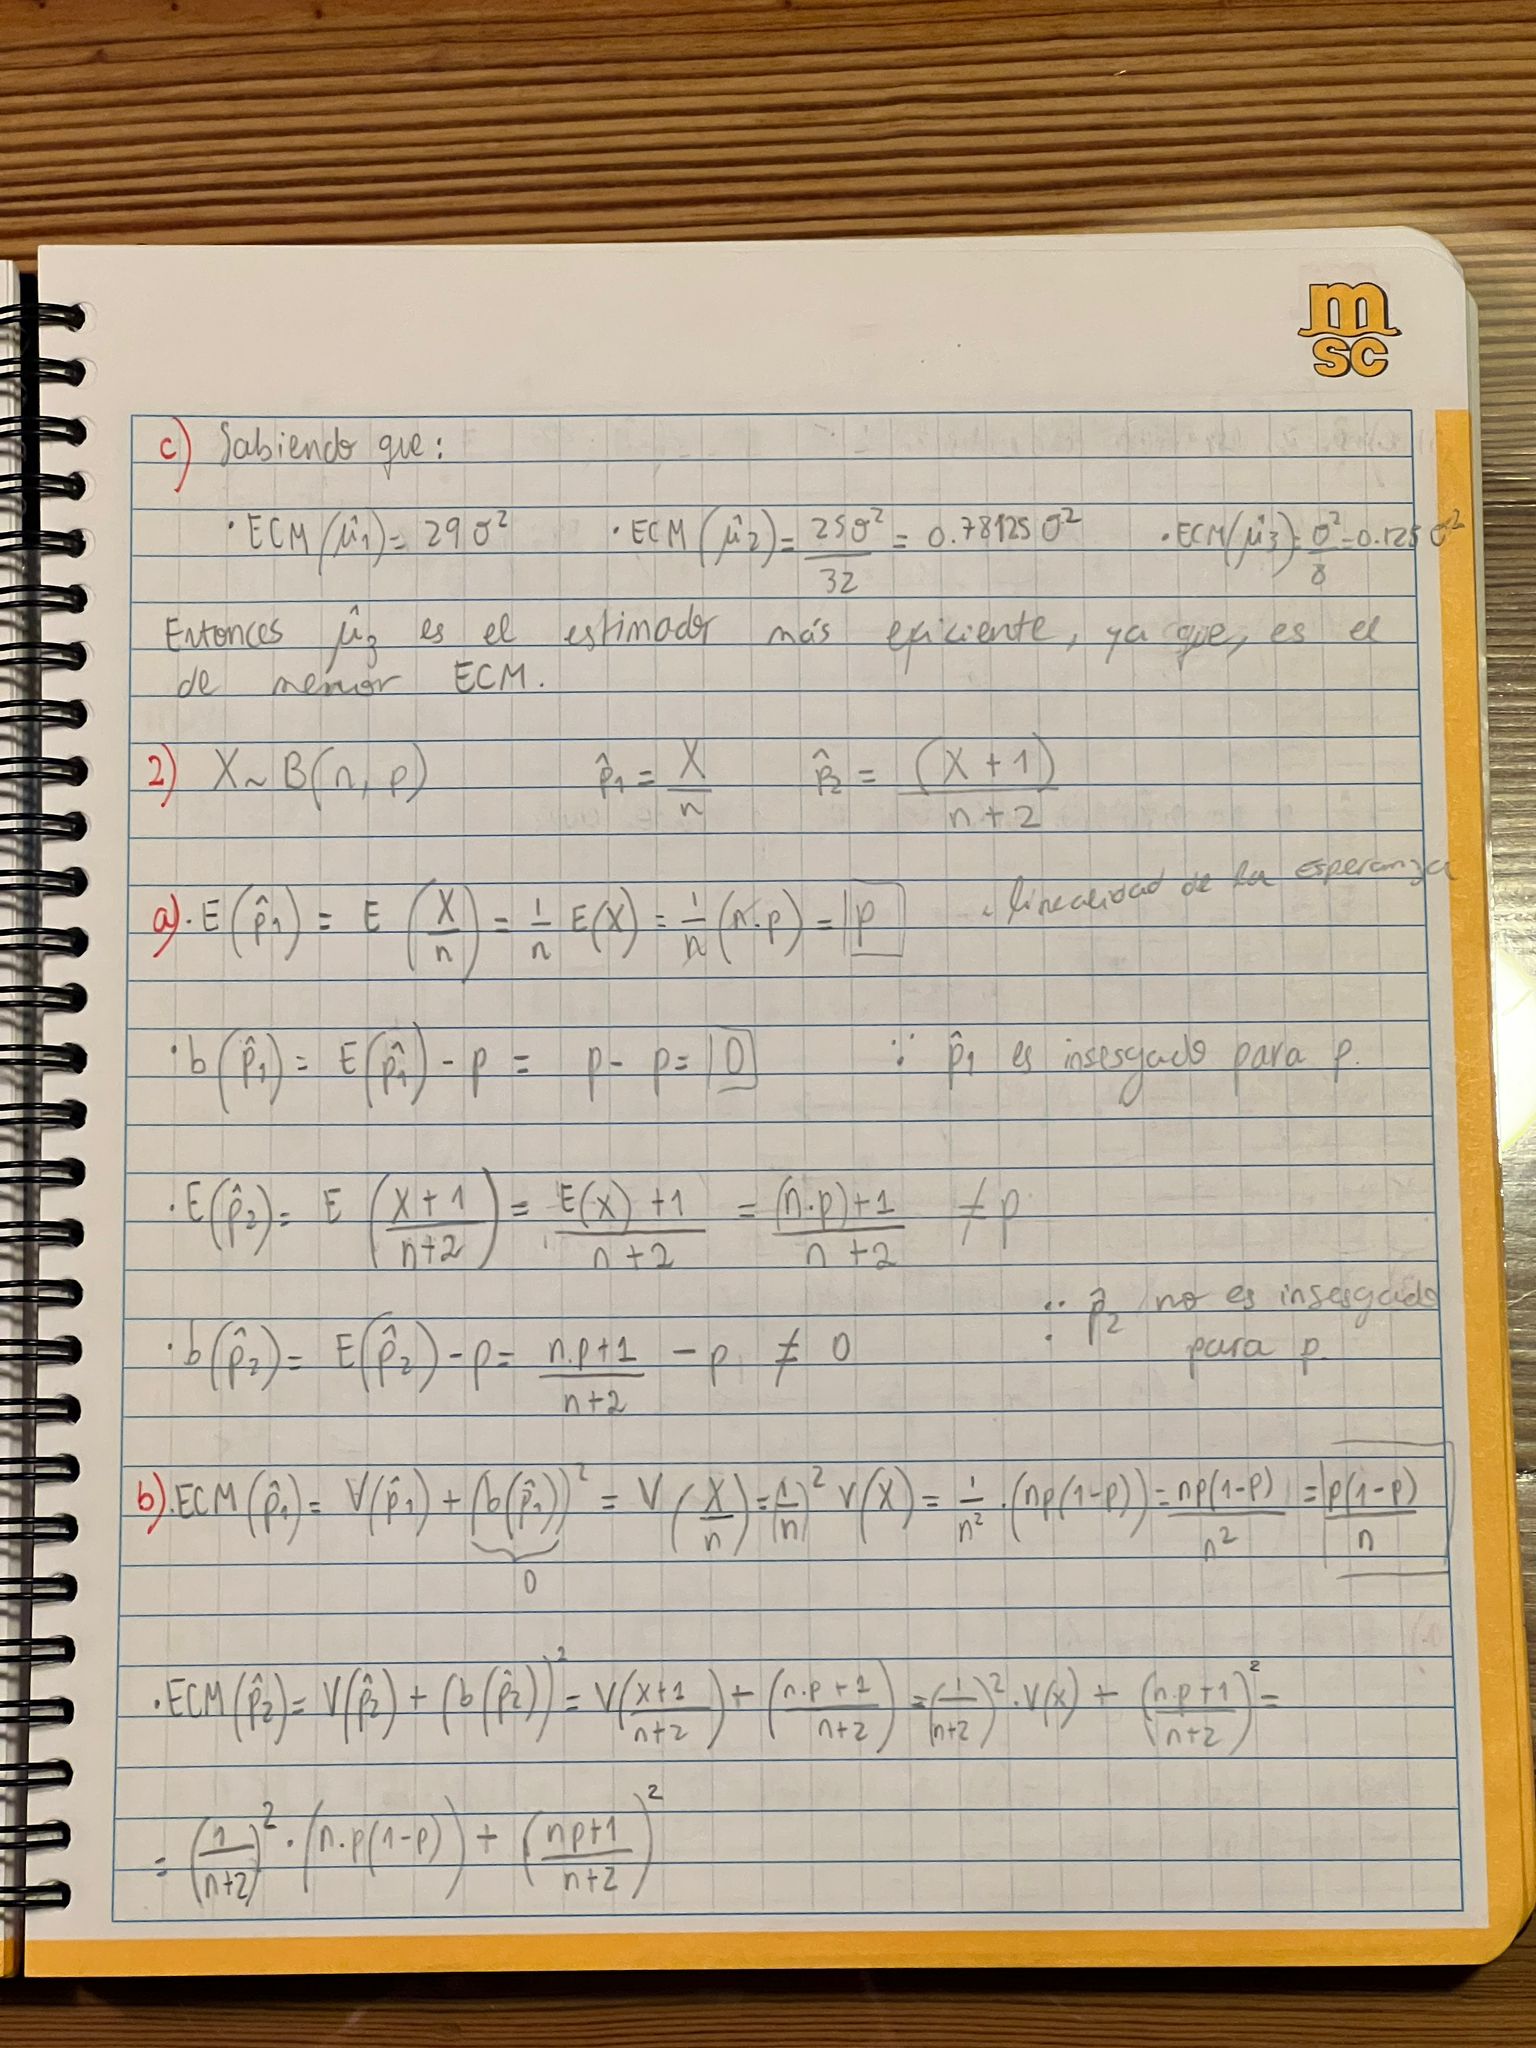 m
sc
c) Sabiendo que:
· ECM(μ̂1) = 29σ² · ECM(μ̂2) = 25σ²/32 = 0.78125σ² · ECM(μ̂3) = σ²/8 = 0.125σ²
Entonces μ̂3 es el estimador más eficiente, ya que, es el
de menor ECM.
2) X ~ B(n, p) p̂1 = X/n p̂2 = (X + 1)/(n + 2)
linealidad de la esperanza
a) · E(p̂1) = E(X/n) = 1/n E(X) = 1/n (n·p) = p
· b(p̂1) = E(p̂1) - p = p - p = 0 ∵ p̂1 es insesgado para p.
· E(p̂2) = E((X + 1)/(n+2)) = (E(x) + 1)/(n + 2) = ((n·p)+1)/(n + 2) ≠ p
∴ p̂2 no es insesgado
· b(p̂2) = E(p̂2) - p = (n.p+1)/(n+2) - p ≠ 0 para p.
b) · ECM(p̂1) = V(p̂1) + (b(p̂1))² = V(X/n) = (1/n)² V(X) = 1/n² · (np(1-p)) = np(1-p)/n² = p(1-p)/n
0
· ECM(p̂2) = V(p̂2) + (b(p̂2))² = V((x+1)/(n+2)) + ((n.p+1)/(n+2)) = (1/(n+2))² · V(x) + ((n.p+1)/(n+2))² =
= (1/(n+2))² · (n.p(1-p)) + ((np+1)/(n+2))²